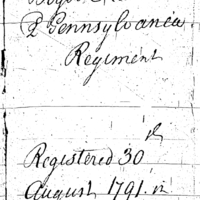 2 Pennsylvania
Regiment
Registered 30th
August 1791. in